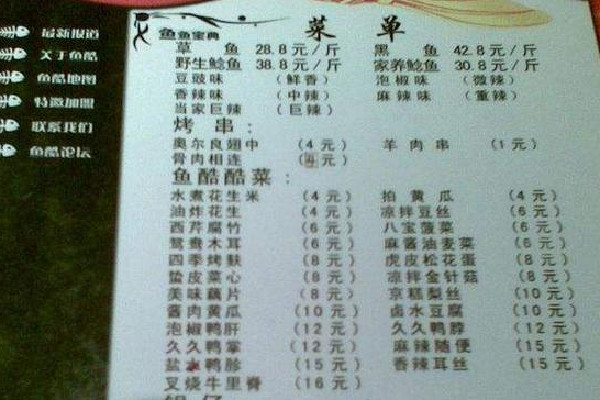 最新报道
关于鱼酷
鱼酷地图
特邀加盟
联系我们
鱼酷论坛
鱼鱼宝典
菜 单
草 鱼 28.8元/斤 黑 鱼 42.8元/斤
野生鲶鱼 38.8元/斤 家养鲶鱼 30.8元/斤
豆豉味 (鲜香) 泡椒味 (微辣)
香辣味 (中辣) 麻辣味 (重辣)
当家巨辣 (巨辣)
烤 串:
奥尔良翅中 (4元) 羊肉串 (1元)
骨肉相连 (元)
鱼酷酷菜:
水煮花生米 (4元) 拍黄瓜 (4元)
油炸花生 (4元) 凉拌豆丝 (6元)
西芹腐竹 (6元) 八宝菠菜 (6元)
鸳鸯木耳 (6元) 麻酱油麦菜 (6元)
四季烤麸 (8元) 虎皮松花蛋 (8元)
蛰皮菜心 (8元) 凉拌金针菇 (8元)
美味藕片 (8元) 京糕梨丝 (10元)
酱肉黄瓜 (10元) 卤水豆腐 (10元)
泡椒鸭肝 (12元) 久久鸭脖 (12元)
久久鸭掌 (12元) 麻辣随便 (15元)
盐水鸭胗 (15元) 香辣耳丝 (15元)
叉烧牛里脊 (16元)